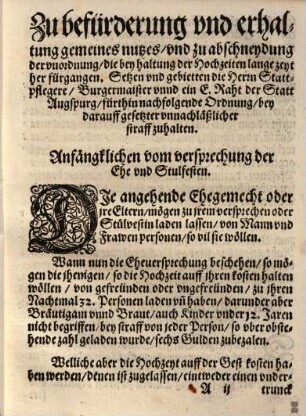 Zu befürderung vnd erhal-
tung gemeines nutzes/vnd zu abschneydung
der vnordnung/die bey haltung der Hochzeiten lange zeyt
her fürgangen. Setzen vnd gebietten die Herrn Statt-
pflegere/Burgermaister vnnd ein E. Raht der Statt
Augspurg/fürthin nachfolgende Ordnung/bey
darauff gesetzter vnnachläßlicher
straff zuhalten.
Anfängklichen vom versprechung der
Ehe vnd Stulfesten.
DIe angehende Ehegemecht oder
jre Eltern/mögen zu jrem versprechen oder
Stülvestin laden lassen/von Mann vnd
Frawen personen/so vil sie wöllen.
Wann nun die Eheuersprechung beschehen/so mö-
gen die jhenigen/so die Hochzeit auff jhren kosten halten
wöllen/von gefreündten oder vngefreündten/zu jhren
Nachtmal 32. Personen laden vñ haben/darunder aber
Bräutigam vnnd Braut/auch Kinder vnder 12. Jaren
nicht begriffen/bey straff von jeder Person/so vber obste-
hende zahl geladen wurde/sechs Gulden zubezalen.
Welliche aber die Hochzeyt auff der Gest kosten ha-
ben werden/denen ist zugelassen/eintweder einen vnder-
A ij trunck